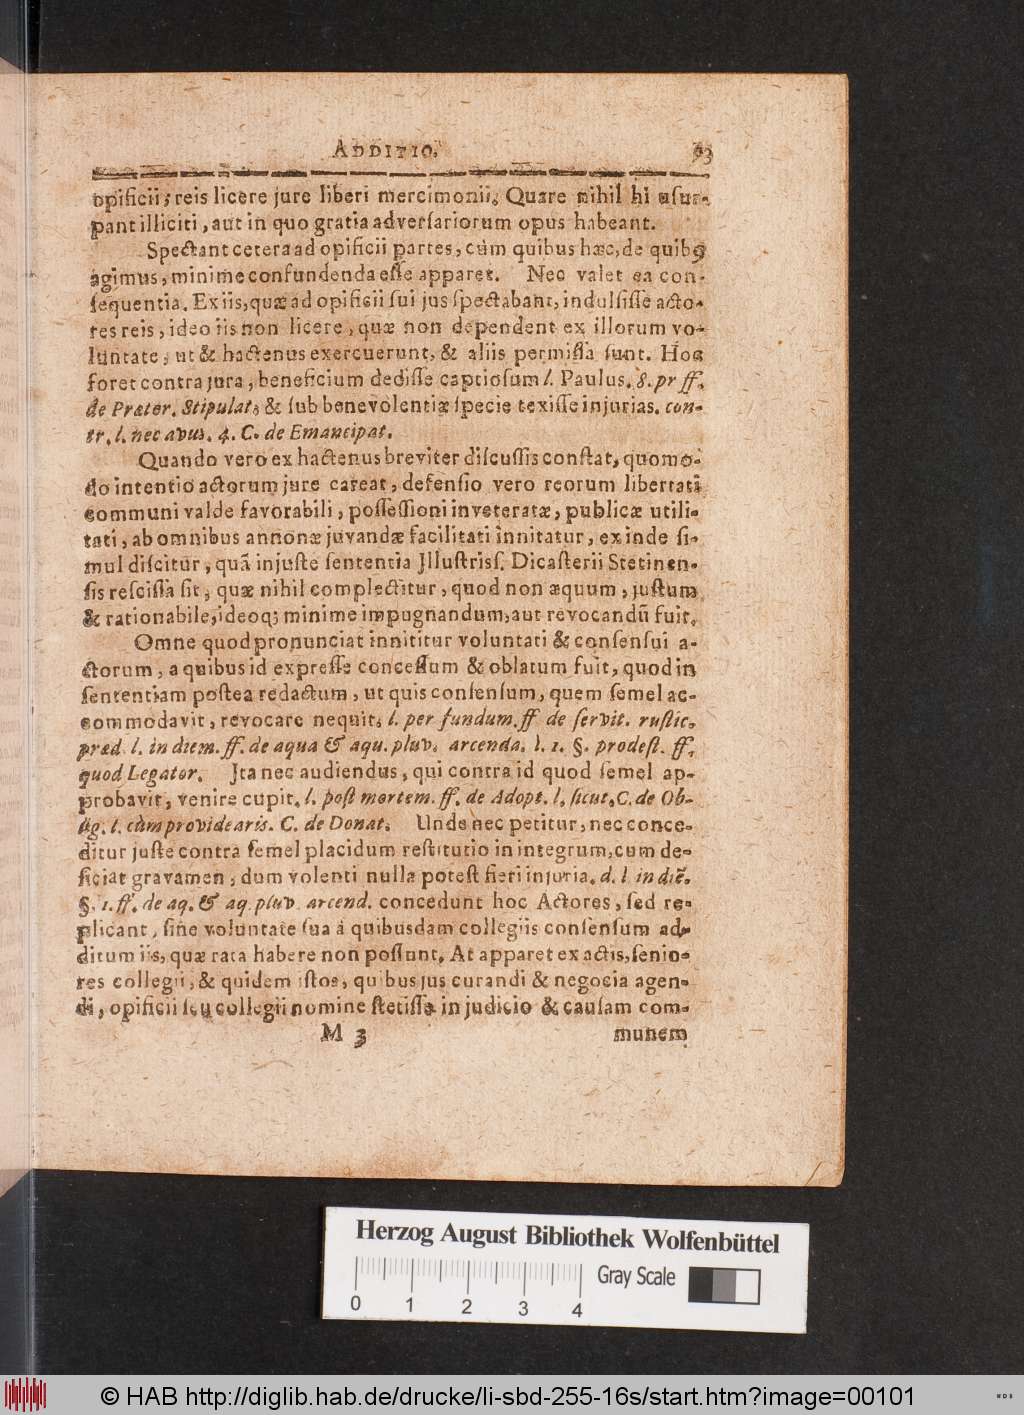 ADDITIO. 93
opificii; reis licere jure liberi mercimonii. Quare nihil hi uſur-
pant illiciti, aut in quo gratia adverſariorum opus habeant.
Spectant cetera ad opificii partes, cùm quibus hæc, de quibꝰ
agimus, minime confundenda eſſe apparet. Nec valet ea con-
ſequentia. Ex iis, quæ ad opificii ſui jus ſpectabant, indulſiſſe acto-
res reis, ideo iis non licere, quæ non dependent ex illorum vo-
luntate, ut & hactenus exercuerunt, & aliis permiſſa ſunt. Hoc
foret contra jura, beneficium dediſſe captioſum l. Paulus. 8. pr ff.
de Præter. Stipulat, & ſub benevolentiæ ſpecie texiſſe injurias. con-
tr. l. nec avus. 4. C. de Emancipat.
Quando vero ex hactenus breviter diſcuſſis conſtat, quomo-
do intentio actorum jure careat, defenſio vero reorum libertati
communi valde favorabili, poſſeſſioni inveteratæ, publicæ utili-
tati, ab omnibus annonæ juvandæ facilitati innitatur, ex inde ſi-
mul diſcitur, quã injuſte ſententia Jlluſtriſſ. Dicaſterii Stetinen-
ſis reſciſſa ſit, quæ nihil complectitur, quod non æquum, juſtum
& rationabile, ideoq; minime impugnandum, aut revocandũ fuit.
Omne quod pronunciat innititur voluntati & conſenſui a-
ctorum, a quibus id expreſſe conceſſum & oblatum fuit, quod in
ſententiam poſtea redactum, ut quis conſenſum, quem ſemel ac-
commodavit, revocare nequit. l. per fundum. ff de ſervit. ruſtic.
præd. l. in diem. ff. de aqua & aqu. pluv. arcenda. l. 1. §. prodeſt. ff.
quod Legator. Jta nec audiendus, qui contra id quod ſemel ap-
probavit, venire cupit. l. poſt mortem. ff. de Adopt. l. ſicut. C. de Ob-
lig. l. cùm providearis. C. de Donat. Unde nec petitur, nec conce-
ditur juſte contra ſemel placidum reſtitutio in integrum, cum de-
ficiat gravamen, dum volenti nulla poteſt fieri injuria. d. l in diẽ.
§. 1. ff. de aq. & aq. pluv. arcend. concedunt hoc Actores, ſed re-
plicant, ſine voluntate ſua á quibusdam collegiis conſenſum ad-
ditum iis, quæ rata habere non poſſunt. At apparet ex actis, ſenio-
res collegii, & quidem iſtos, quibus jus curandi & negocia agen-
di, opificii ſeu collegii nomine ſtetiſſe in judicio & cauſam com-
M 3 munem
Herzog August Bibliothek Wolfenbüttel
Gray Scale
0 1 2 3 4
© HAB http://diglib.hab.de/drucke/li-sbd-255-16s/start.htm?image=00101
WDB